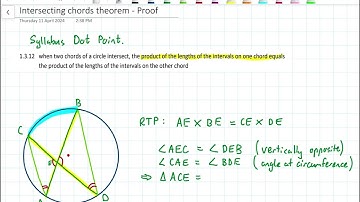 Intersecting chords theorem - Proof
Thursday 11 April 2024 2:38 PM
Syllabus Dot Point.
1.3.12 when two chords of a circle intersect, the product of the lengths of the intervals on one chord equals
the product of the lengths of the intervals on the other chord
B
RTP: AE × BE = CE × DE
C
∠AEC = ∠DEB (vertically opposite)
E
∠CAE = ∠BDE (angle at circumference)
⇒ △ACE =
A
D